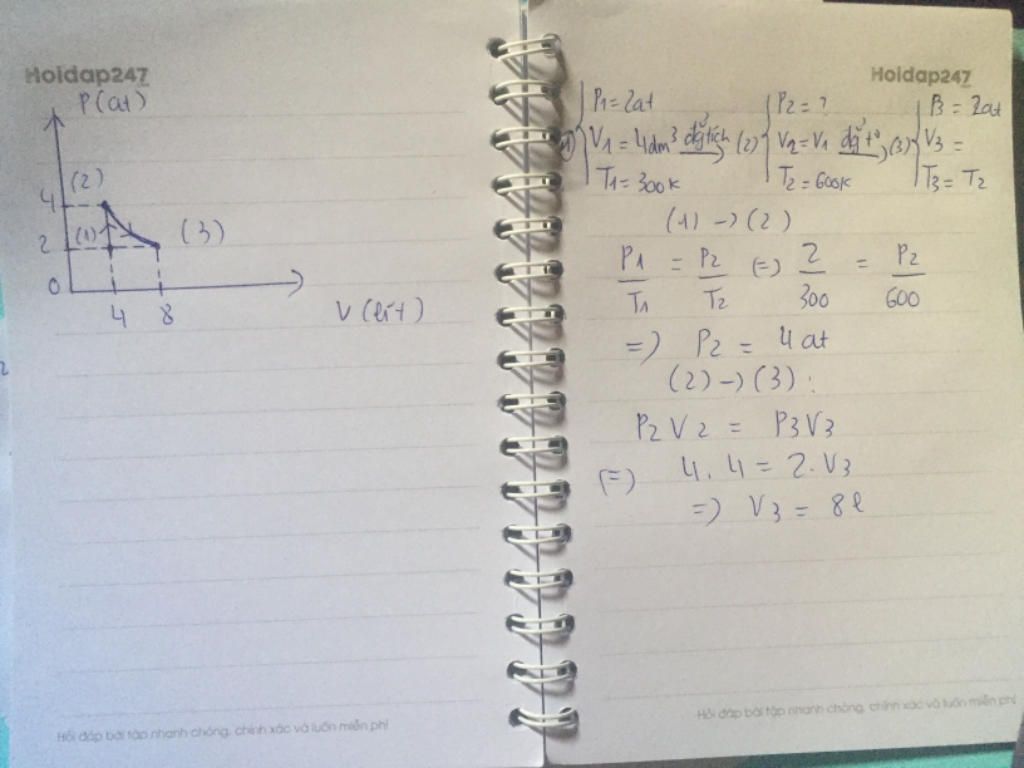 Hoidap247
P(at)
(2)
4
(1)
(3)
2
0
4 8
V (lít)
Hỏi đáp bài tập nhanh chóng, chính xác và luôn miễn phí
Hoidap247
P1 = 2at P2 = ? P3 = 2at
(1) V1 = 4dm³ đẳng tích (2) V2 = V1 đẳng t° (3) V3 =
T1 = 300K T2 = 600K T3 = T2
(1) → (2)
P1/T1 = P2/T2 (=) 2/300 = P2/600
=) P2 = 4 at
(2) → (3) :
P2 V2 = P3 V3
(=) 4. 4 = 2. V3
=) V3 = 8 l
Hỏi đáp bài tập nhanh chóng, chính xác và luôn miễn phí